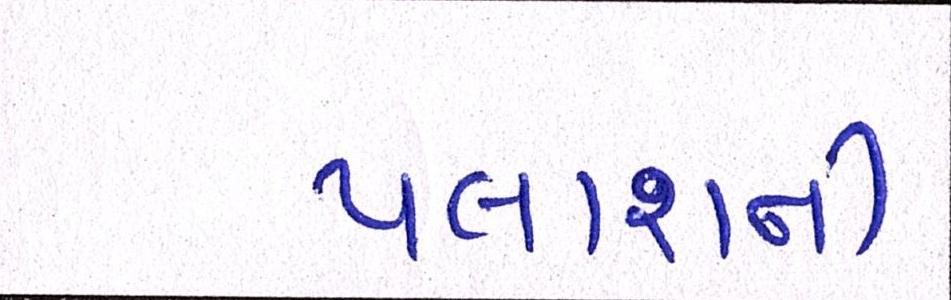 પલાશની